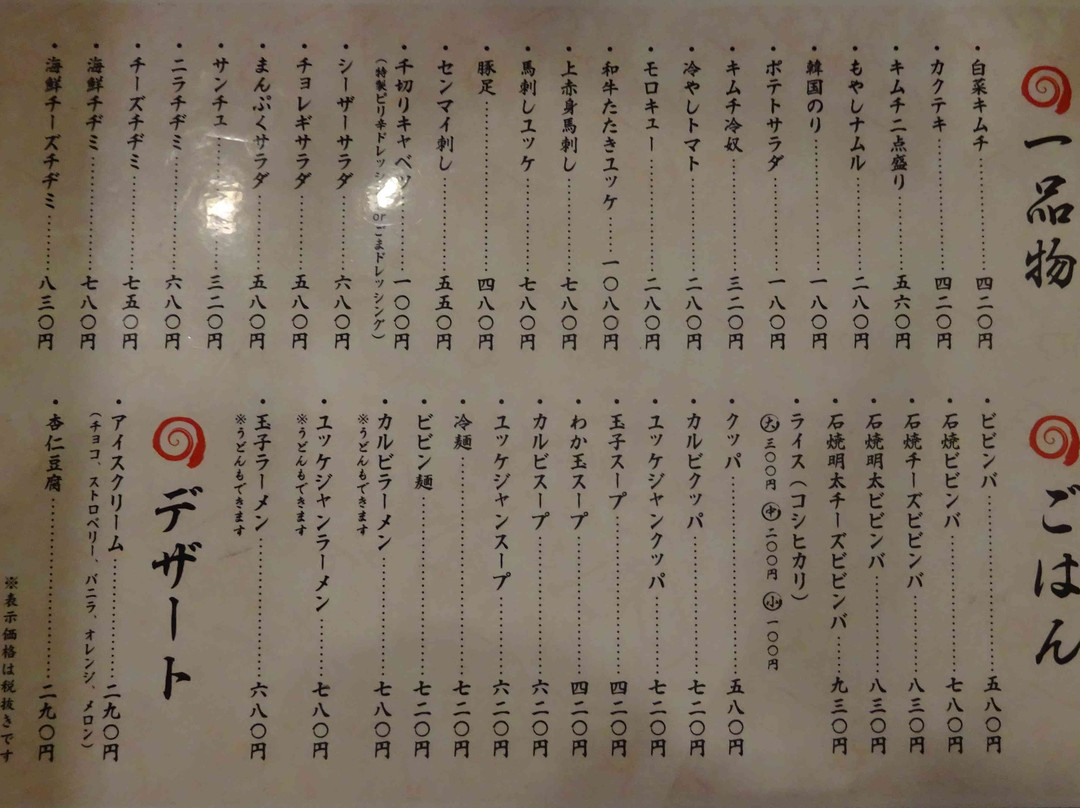 一品物
・白菜キムチ……四二〇円
・カクテキ……四二〇円
・キムチ二点盛り……五六〇円
・もやしナムル……二八〇円
・韓国のり……一八〇円
・ポテトサラダ……一八〇円
・キムチ冷奴……三二〇円
・冷やしトマト……二八〇円
・モロキュー……二八〇円
・和牛たたきユッケ……一〇八〇円
・上赤身馬刺し……七八〇円
・馬刺しユッケ……七八〇円
・豚足……四八〇円
・センマイ刺し……五五〇円
・千切りキャベツ……一〇〇円
（特製ピリ辛ドレッシングorごまドレッシング）
・シーザーサラダ……六八〇円
・チョレギサラダ……五八〇円
・まんぷくサラダ……五八〇円
・サンチュ……三二〇円
・ニラチヂミ……六八〇円
・チーズチヂミ……七五〇円
・海鮮チヂミ……七八〇円
・海鮮チーズチヂミ……八三〇円
ごはん
・ビビンバ……五八〇円
・石焼ビビンバ……七八〇円
・石焼チーズビビンバ……八三〇円
・石焼明太ビビンバ……八三〇円
・石焼明太チーズビビンバ……九三〇円
・ライス（コシヒカリ）
㊛三〇〇円 ㊥二〇〇円 ㊙一〇〇円
・クッパ……五八〇円
・カルビクッパ……七二〇円
・ユッケジャンクッパ……七二〇円
・玉子スープ……四二〇円
・わか玉スープ……四二〇円
・カルビスープ……六二〇円
・ユッケジャンスープ……六二〇円
・冷麺……七二〇円
・ビビン麺……七二〇円
・カルビラーメン……七八〇円
※うどんもできます
・ユッケジャンラーメン……七八〇円
※うどんもできます
・玉子ラーメン……六八〇円
※うどんもできます
デザート
・アイスクリーム……二九〇円
（チョコ、ストロベリー、バニラ、オレンジ、メロン）
・杏仁豆腐……二九〇円
※表示価格は税抜きです